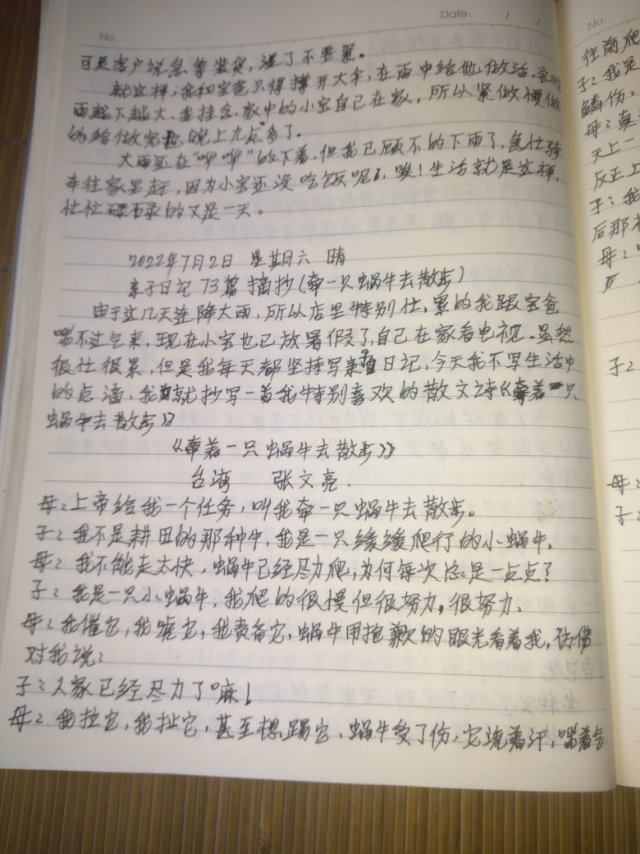 No:
Date: / /
可是客户说急等装货，湿了不要紧。
就这样，我和宝爸只得撑开大伞，在雨中给他做活。
雨越下越大、我挂念家中的小宝自己在家，所以紧做慢做
的给做完也晚上九点多了。
大雨还在"哗哗"的下着，但我已顾不的下雨了，急忙骑
车往家里赶，因为小宝还没吃饭呢，唉！生活就是这样，
忙忙碌碌的又是一天。
2022年7月2日 星期六 晴
亲子日记73篇摘抄(牵一只蜗牛去散步)
由于这几天连降大雨，所以店里特别忙，累的我跟宝爸
喘不过气来，现在小宝也已放暑假了，自己在家看电视。虽然
很忙很累，但是我每天都坚持写亲子日记，今天我不写生活中
的点滴，我就抄写一首我特别喜欢的散文诗《牵着一只
蜗牛去散步》
《牵着一只蜗牛去散步》
台湾 张文亮.
母：上帝给我一个任务，叫我牵一只蜗牛去散步。
子：我不是耕田的那种牛，我是一只缓缓爬行的小蜗牛。
母：我不能走太快，蜗牛已经尽力爬，为何每次总是一点点？
子：我是一只小蜗牛，我爬的很慢但很努力，很努力、
母：我催它，我唬它，我责备它，蜗牛用抱歉的眼光看着我，仿佛
对我说：
子：人家已经尽力了嘛！
母：我拉它，我扯它，甚至想踢它，蜗牛受了伤，它流着汗，喘着气
No:
往前爬
子：我是
鳞伤。
母：真
天上一
反正上
子：我
后那
母：
子：
母：
子：